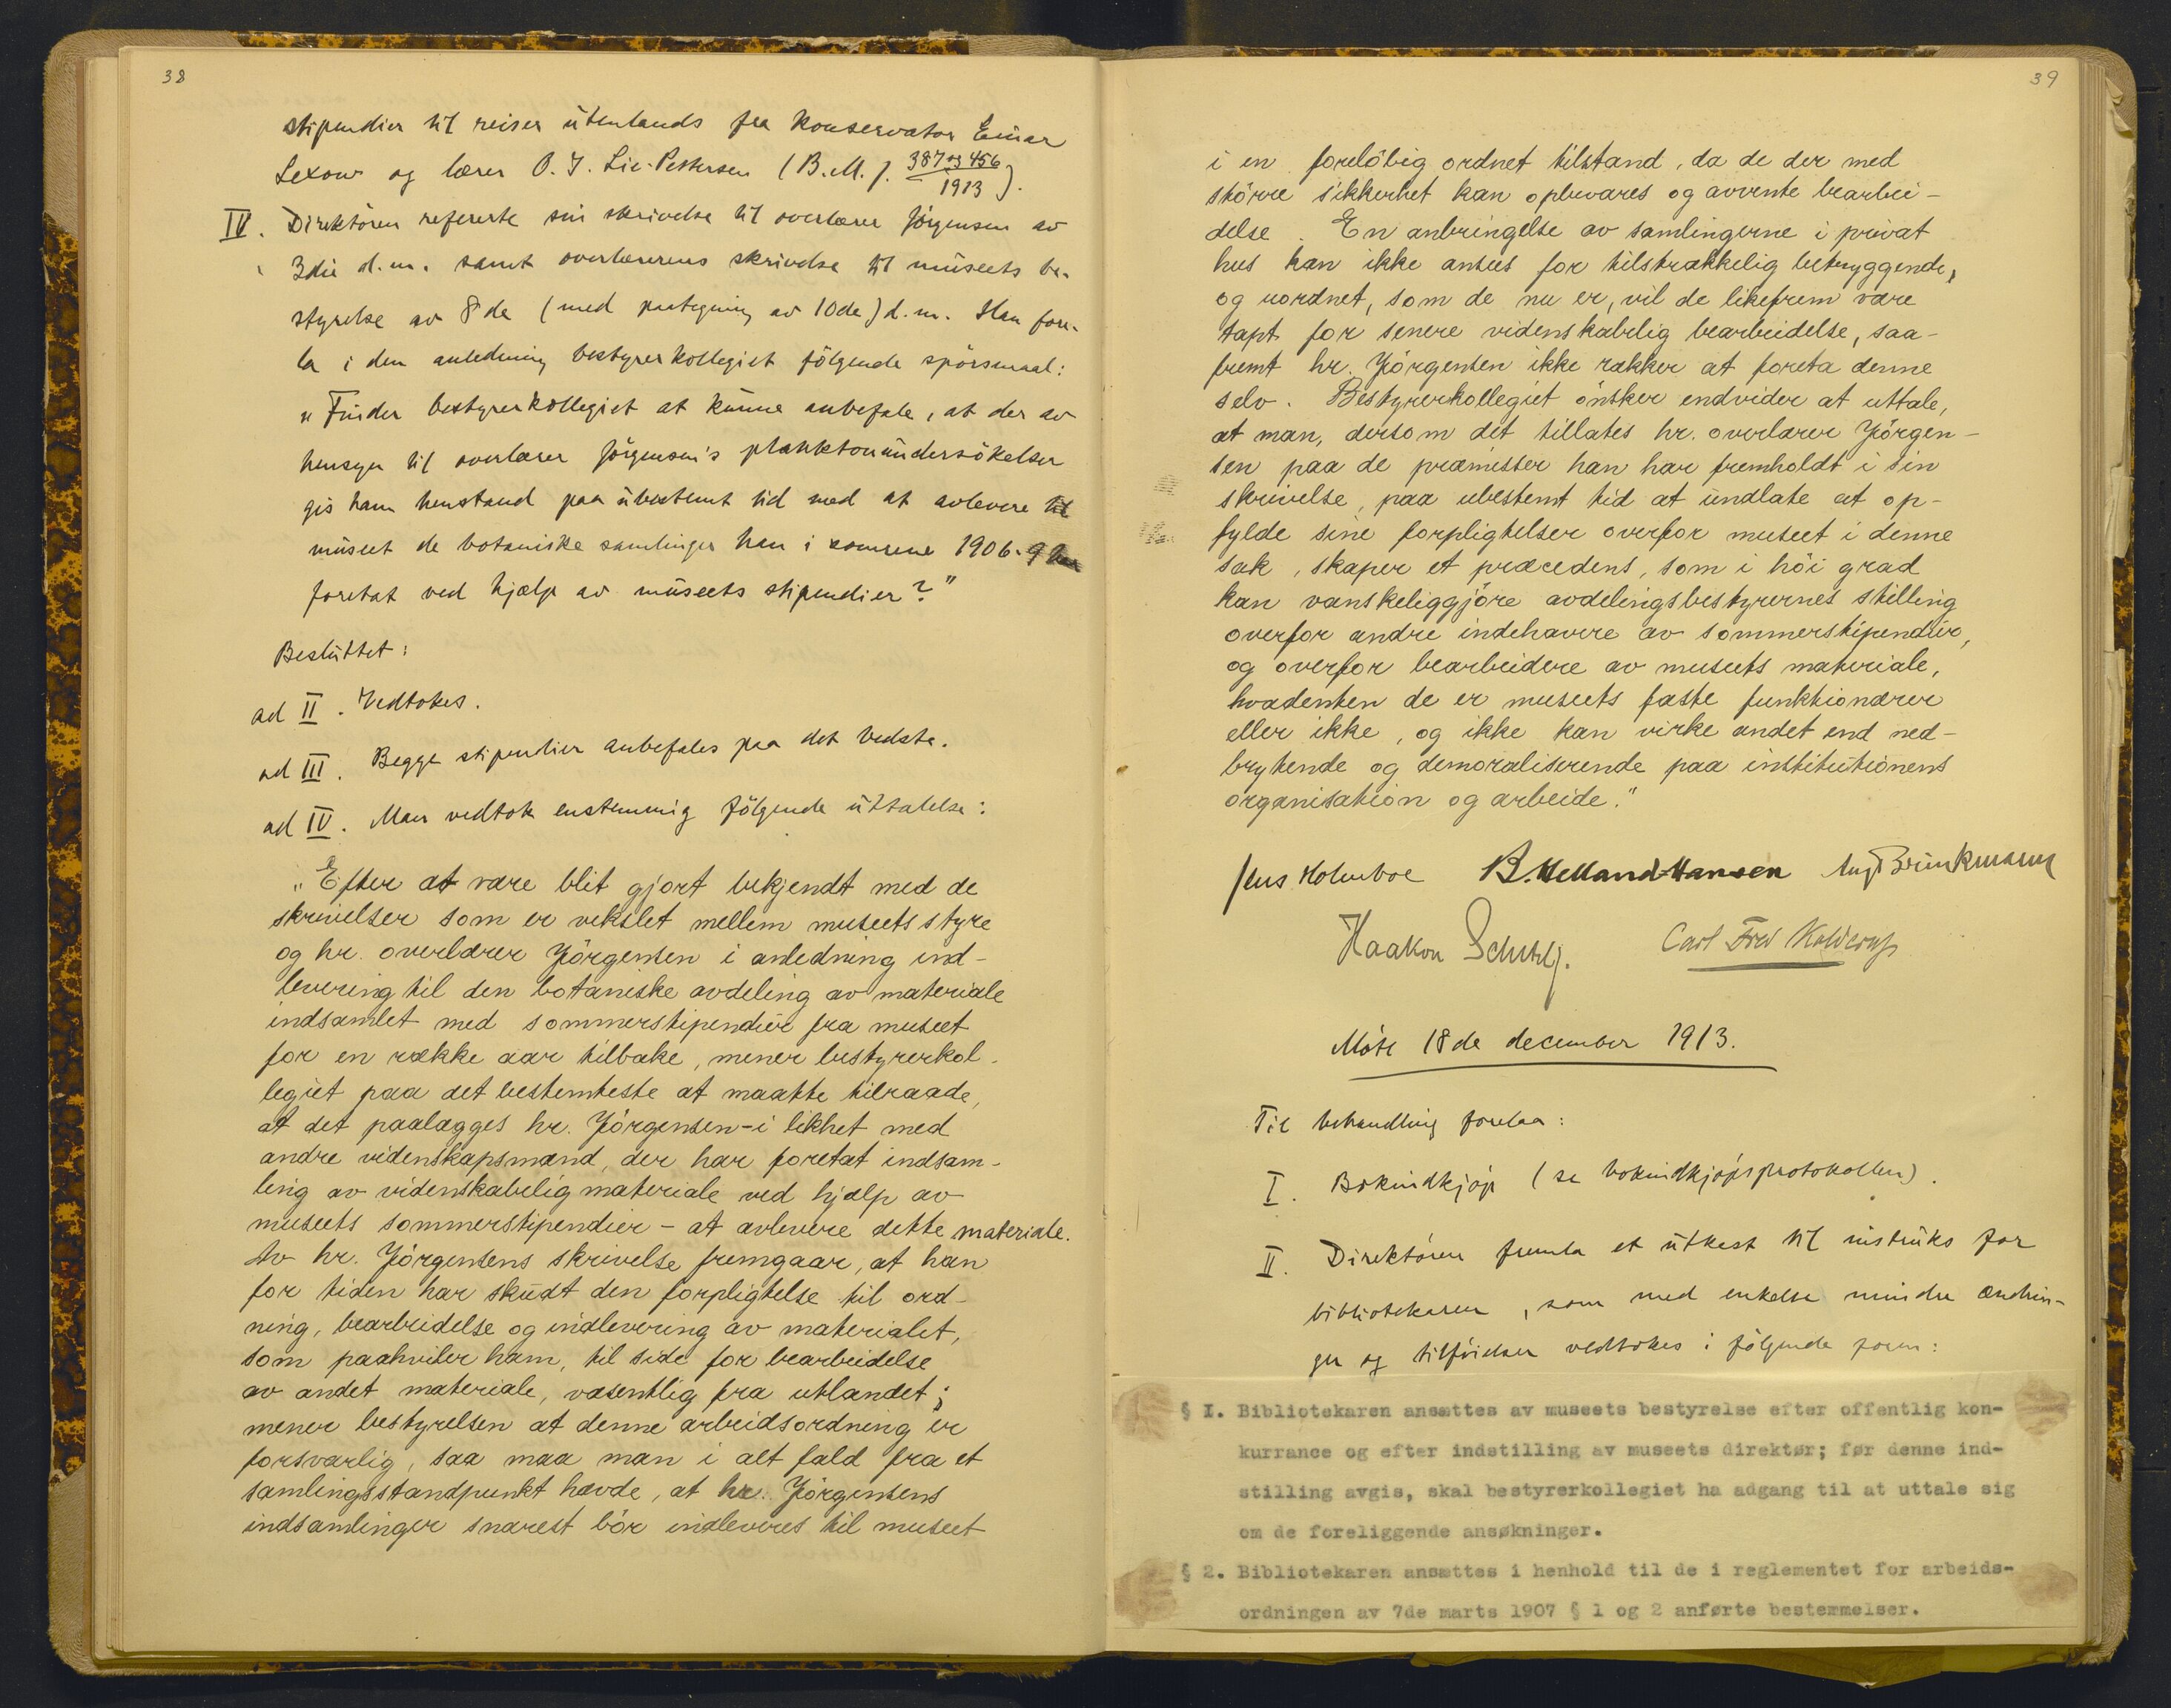 38
stipendier til reiser utenlands fra konservator Einar
Lexow og lærer O. J. Lie-Pettersen (B.M. J. 387 og 456 / 1913).
IV. Direktören refererte sin skrivelse til overlærer Jörgensen av
3die d.m. samt overlærerens skrivelse til museets be-
styrelse av 8de (med paategning av 10de) d.m. Han fore-
la i den anledning bestyrerkollegiet fölgende spörsmaal:
„Finder bestyrerkollegiet at kunne anbefale, at der av
hensyn til overlærer Jörgensen's planktonundersökelser
gis ham henstand paa ubestemt tid med at avlevere til
museet de botaniske samlinger han i somrene 1906-9 har
foretat ved hjælp av museets stipendier?"
Besluttet:
ad II. Vedtokes.
ad III. Begge stipendier anbefales paa det bedste.
ad IV. Man vedtok enstemmig fölgende uttalelse:
„Efter at være blit gjort bekjendt med de
skrivelser som er vekslet mellem museets styre
og hr. overlærer Jörgensen i anledning ind-
levering til den botaniske avdeling av materiale
indsamlet med sommerstipendier fra museet
for en række aar tilbake, mener bestyrerkol-
legiet paa det bestemteste at maatte tilraade,
at det paalægges hr. Jörgensen - i likhet med
andre videnskapsmænd, der har foretat indsam-
ling av videnskabelig materiale ved hjælp av
museets sommerstipendier - at avlevere dette materiale.
Av hr. Jörgensens skrivelse fremgaar, at han
for tiden har skudt den forpligtelse til ord-
ning, bearbeidelse og indlevering av materialet,
som paahviler ham, til side for bearbeidelse
av andet materiale, væsentlig fra utlandet;
mener bestyrelsen at denne arbeidsordning er
forsvarlig, saa maa man i alt fald fra et
samlingsstandpunkt hævde, at hr. Jörgensens
indsamlinger snarest bör indleveres til museet
39
i en forelöbig ordnet tilstand, da de der med
större sikkerhet kan opbevares og avvente bearbei-
delse. En anbringelse av samlingerne i privat
hus kan ikke ansees for tilstrækkelig betryggende,
og uordnet, som de nu er, vil de likefrem være
tapt for senere videnskabelig bearbeidelse, saa-
fremt hr. Jörgensen ikke rækker at foreta denne
selv. Bestyrerkollegiet önsker endvider at uttale,
at man, dersom det tillates hr. overlærer Jörgen-
sen paa de præmisser han har fremholdt i sin
skrivelse, paa ubestemt tid at undlate at op-
fylde sine forpligtelser overfor museet i denne
sak, skaper et præcedens, som i höi grad
kan vanskeliggjöre avdelingsbestyrernes stilling
overfor andre indehavere av sommerstipendier,
og overfor bearbeidere av museets materiale,
hvadenten de er museets faste funktionærer
eller ikke, og ikke kan virke andet end ned-
brytende og demoraliserende paa institutionens
organisation og arbeide."
Jens Holmboe B. Helland-Hansen Aug Brinkmann
Haakon Schetelig. Carl Fred Kolderup
Möte 18de december 1913.
Til behandling forelaa:
I. Bokindkjöp (se bokindkjöpsprotokollen).
II. Direktören fremla et utkast til instruks for
bibliotekaren, som med enkelte mindre ændrin-
ger og tilföielser vedtokes i fölgende form:
§ I. Bibliotekaren ansættes av museets bestyrelse efter offentlig kon-
kurrance og efter indstilling av museets direktør; før denne ind-
stilling avgis, skal bestyrerkollegiet ha adgang til at uttale sig
om de foreliggende ansøkninger.
§ 2. Bibliotekaren ansættes i henhold til de i reglementet for arbeids-
ordningen av 7de marts 1907 § 1 og 2 anførte bestemmelser.